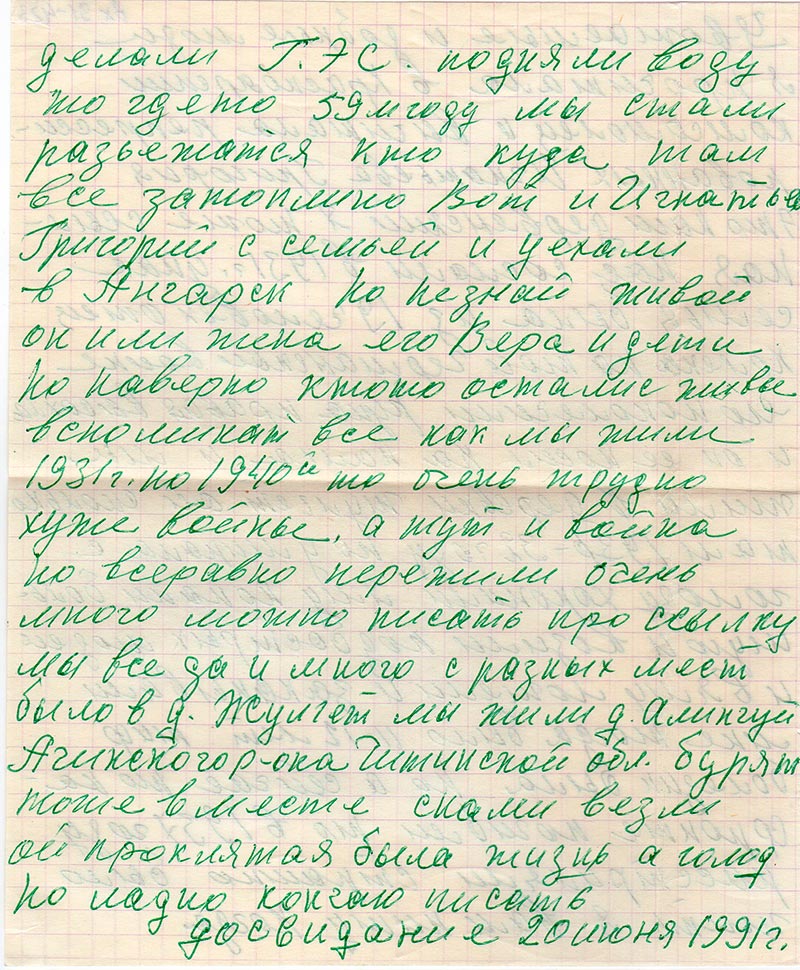 делали Г.ЭС. подняли воду
то гдето 59мгоду мы стали
разьежатся кто куда там
все затоплино Вот и Игнатье
Григорий с семьей и уехали
в Ангарск но незнай живой
он или жена его Вера и дети
но наверно ктото осталис живы
вспоминат все как мы жили
1931г. по 1940й то очень трудно
хуже войны, а тут и война
но всеравно пережили очень
много можно писать про ссылку
мы все да и много с разных мест
было в д. Жулгет мы жили д. Алингуй
Агинскогор-она Читинской обл. бурят
тоже вместе снами везли
ой проклятая была жизнь а голод
но ладно конгаю писать
досвидание 20июня 1991г.